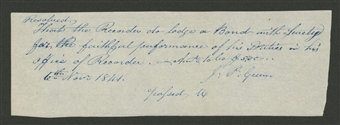 Resolved,
That the Recorder do lodge a Bond with Sureties
for the faithful performance of his Duties in his
Office of Recorder. — to be $
6th Nov. 1841. J. P. Green